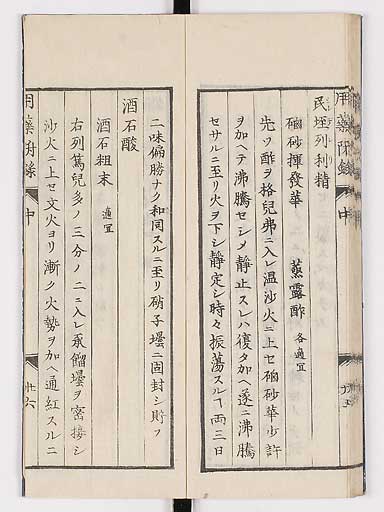 民垤列利精
硇砂揮發華 蒸露酢 各適宜
先ツ酢ヲ格兒弗ニ入レ温沙火ニ上セ硇砂華少許
ヲ加ヘテ沸騰セシメ靜止スレハ復タ加ヘ遂ニ沸騰
セサルニ至リ火ヲ下シ靜定シ時々振蕩スルヿ両三日
用藥附録 中
用藥附録 中 廿六
二味偏勝ナク和同スルニ至リ硝子壜ニ固封シ貯フ
酒石酸
酒石粗末 適宜
右列篤兒多ノ三分ノ二ニ入レ承餾壜ヲ密接シ
沙火ニ上セ文火ヨリ漸ク火勢ヲ加ヘ通紅スルニ